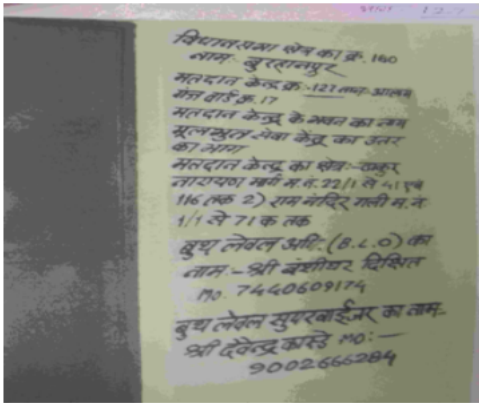 विधानसभा क्षेत्र का क्र. 180
नाम:- बुरहानपुर
मतदान केन्द्र क्र:-127 तथा आलम
गंज वार्ड क्र. 17
मतदान केन्द्र के भवन का नाम
मूलभूत सेवा केंद्र का उत्तर
का भाग
मतदान केन्द्र का क्षेत्र:- ठाकुर
नारायण मार्ग म.नं. 22/1 से 41 एवं
116 तक 2) राम मंदिर गली म.नं
1/1 से 71 क तक
बुथ लेवल अधि. (B.L.O) का
नाम - श्री बंशीधर दिक्षित
mo. 7440609174
बुथ लेवल सुपरवाईजर का नाम-
श्री देवेन्द्र कास्डे mo:-
9002666284